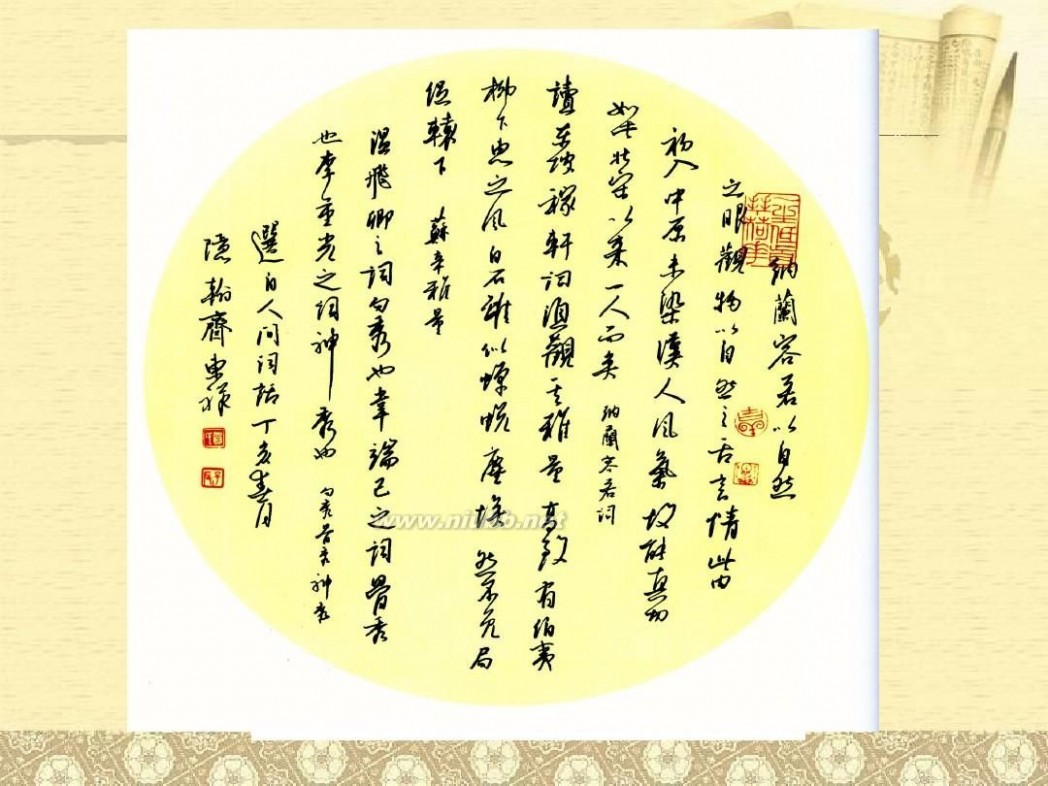 納蘭容若以自然
之眼觀物以自然之舌言情此由
初入中原未染漢人风氣故能真切
如此北宋以来一人而矣 纳蘭容若词
讀东坡稼軒词須觀其雅量高致有伯夷
柳下惠之风白石雖似蟬蜕塵埃然不免局
促轅下 蘇辛雅量
温飛卿之词句秀也韋端己之词骨秀
也李重光之词神秀也 句秀骨秀神秀
選自人间词話丁亥春月
隐翰齋
www.niubb.net